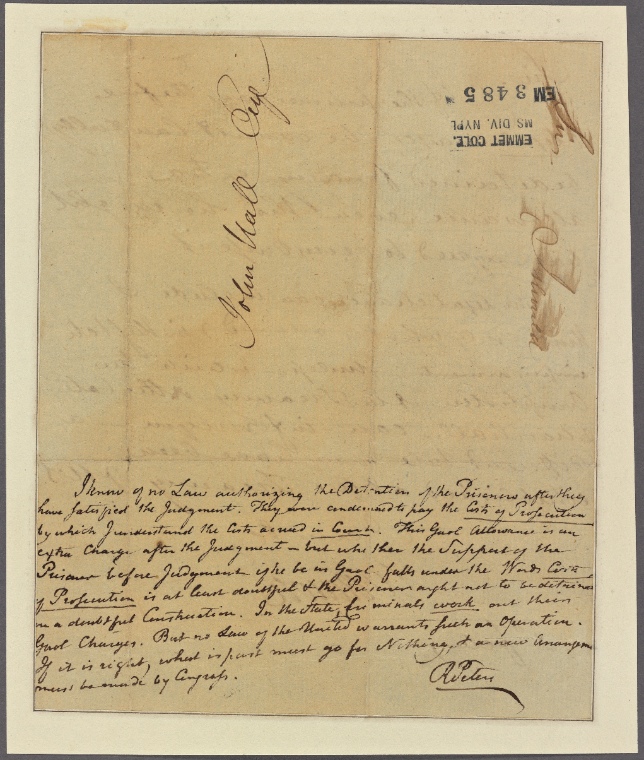 John Hall Esqr
EM 3485
MS DIV. NYPL
EMMET COLL.
I know of no Law authorizing the Detention of the Prisoners after they
have satisfied the Judgment. They were condemned to pay the Costs of Prosecution
by which I understand the Costs accrued in Court. This Gaol Allowance is an
extra Charge after the Judgment – but whether the Support of the
Prisoner before Judgment if he be in Gaol falls under the Words Costs
of Prosecution is at least doubtful & the Prisoner ought not to be detained
on a doubtful Construction. In the State, Criminals work out their
Gaol Charges. But no Law of the United warrants such an Operation.
If it is right, what is past must go for Nothing, & a new Arrangemt
must be made by Congress.
R Peters